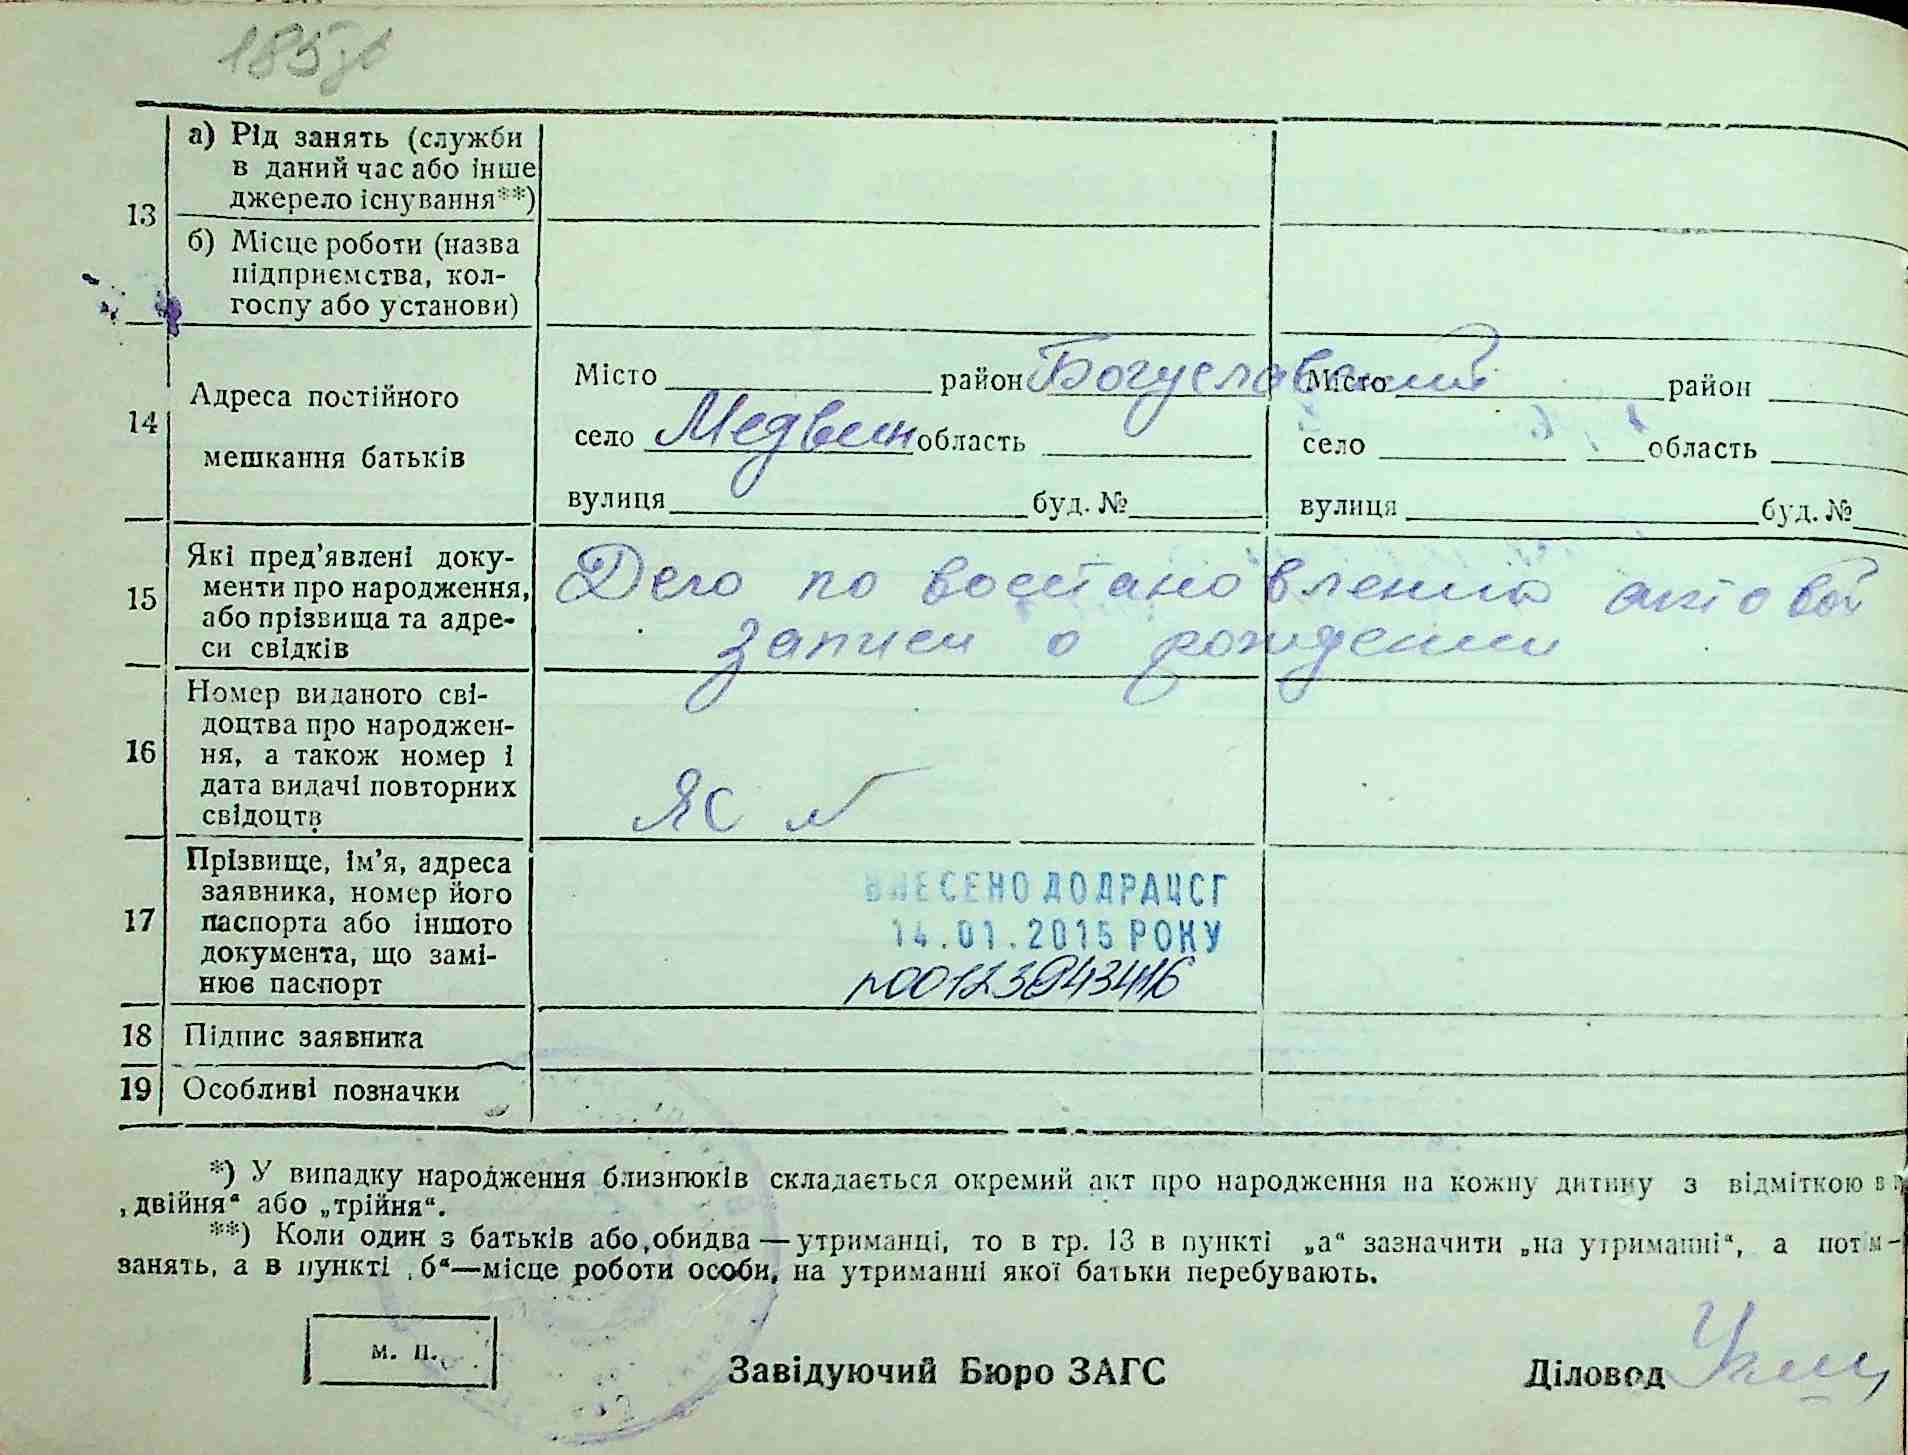 185зв
а) Рід занять (служби
в даний час або інше
джерело існування**)
13
б) Місце роботи (назва
підприємства, кол-
госпу або установи)
14
Адреса постійного
мешкання батьків
Місто район Богуславский
село Медвин область
вулиця буд. №
Місто район
село область
вулиця буд. №
15
Які пред’явлені доку-
менти про народження,
або прізвища та адре-
си свідків
Дело по восстановлению актовой
записи о рождении
16
Номер виданого сві-
доцтва про народжен-
ня, а також номер і
дата видачі повторних
свідоцтв
ЯС №
17
Прізвище, ім’я, адреса
заявника, номер його
паспорта або іншого
документа, що замі-
нює паспорт
ВНЕСЕНО ДО ДРАЦСГ
14.01.2015 РОКУ
18 Підпис заявника
19 Особливі позначки
*) У випадку народження близнюків складається окремий акт про народження на кожну дитину з відміткою
„двійня“ або „трійня“.
**) Коли один з батьків або обидва — утриманці, то в гр. 13 в пункті „а“ зазначити „на утриманні“, а потім —
занять, а в пункті „б“—місце роботи особи, на утриманні якої батьки перебувають.
м. п.
Завідуючий Бюро ЗАГС
Діловод